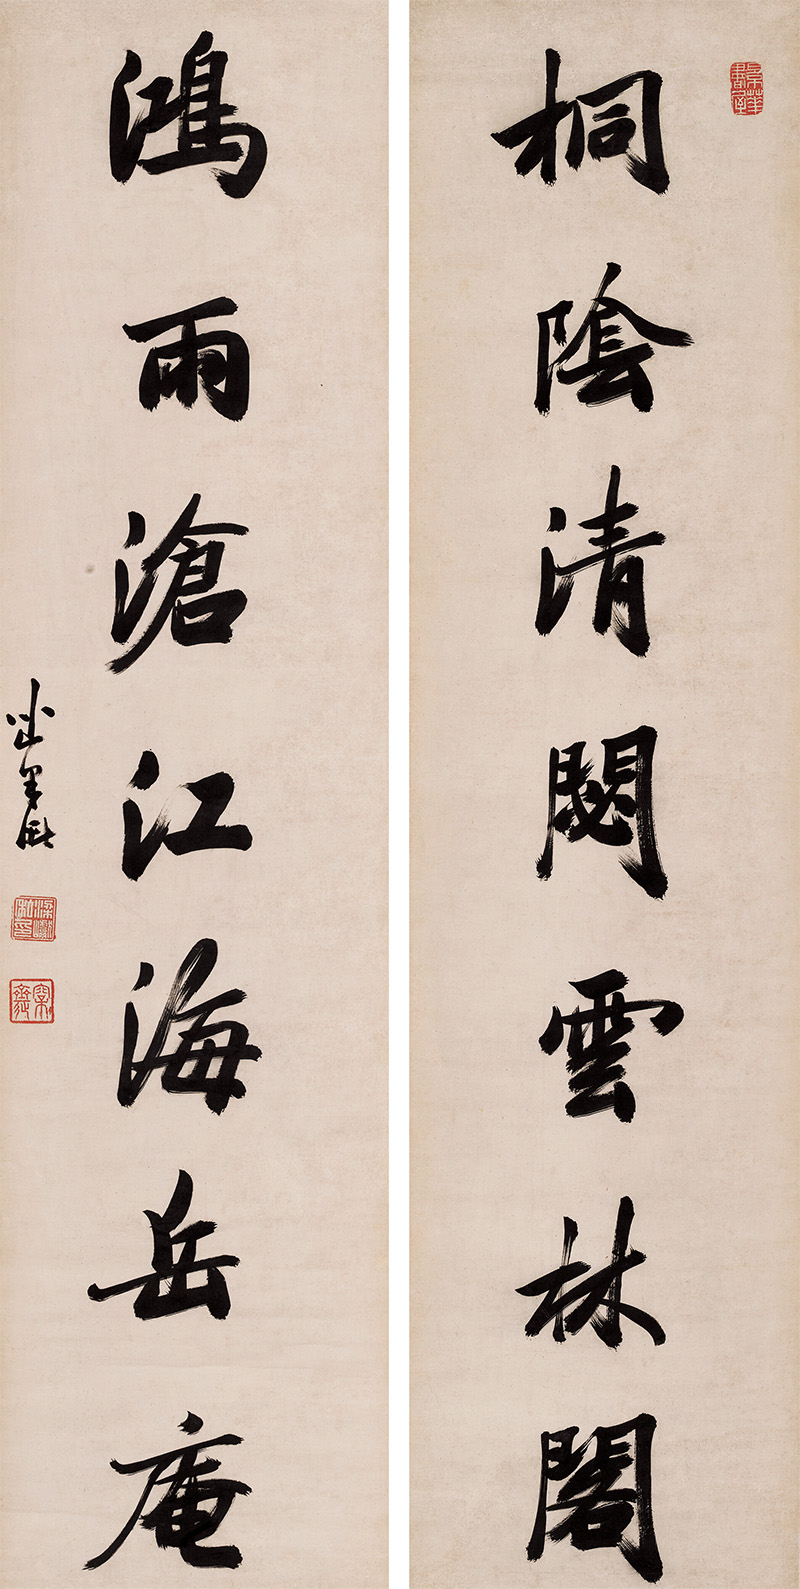 桐陰清閟雲林閣
鴻雨滄江海岳庵